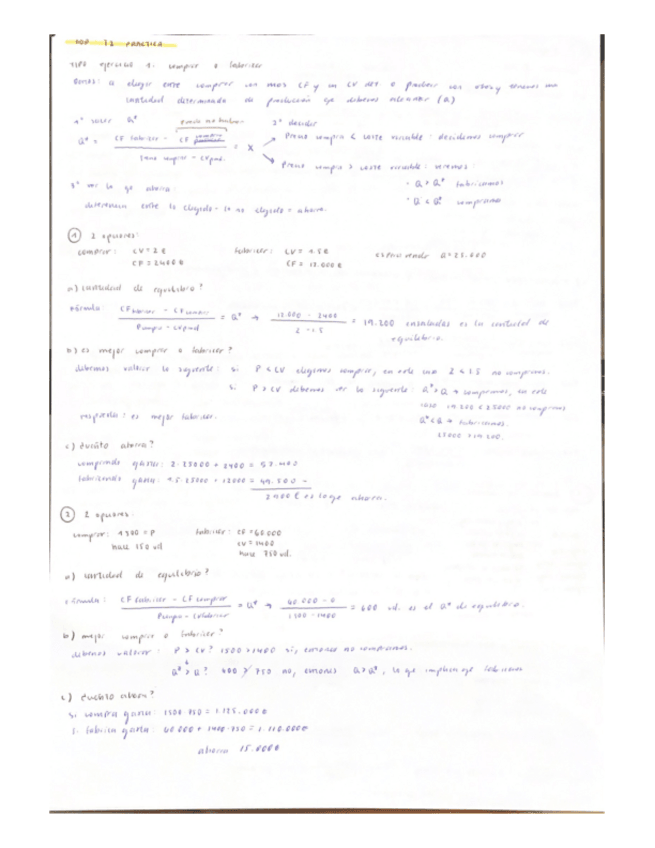 T2 PRACTICA
TIPO ejercicio 1: comprar o fabricar
a elegir entre comprar con unos CF y un CV o producir con otros y tenemos una
cantidad determinada de producción que debemos alcanzar (Q)
1º sacar Q*
2º decidir
Q* = CF fabricar - CF comprar / - CV = X
Precio compra < coste variable: decidimos comprar
Precio compra > coste variable: veremos:
· Q > Q* fabricamos
· Q < Q* compramos
3º ver lo que ahorra:
diferencia entre lo elegido - lo no elegido = ahorro.
① 2 opciones:
comprar: CV = 2 € fabricar: CV = 1.5 € vender Q = 25.000
CF = 2400 € CF = 12.000 €
a) cantidad de equilibrio?
Fórmula: CF fabricar - CF comprar / = Q* → 12.000 - 2400 / 2 - 1.5 = 19.200 ensaladas es la cantidad de
equilibrio.
b) es mejor comprar o fabricar?
debemos valorar lo siguiente: si P < CV elegimos comprar, en este caso 2 < 1.5 no compramos.
si P > CV debemos ver lo siguiente: Q* > Q → compramos, en este
caso 19.200 < 25000 no compramos
Q* < Q → fabricamos.
25000 > 19.200.
respuesta: es mejor fabricar.
c) cuánto ahorra?
comprando gasta: 2·25000 + 2400 = 52.400
fabricando gasta: 1.5·25000 + 12000 = 49.500 -
2900 € es lo que ahorra.
② 2 opciones:
comprar: 1500 = P fabricar: CF = 60.000
hace 750 ud CV = 1400
hace 750 ud.
a) cantidad de equilibrio?
Fórmula: CF fabricar - CF comprar / = Q* → 60.000 - 0 / 1500 - 1400 = 600 uds. es el Q* de equilibrio.
b) mejor comprar o fabricar?
debemos valorar: P > CV? 1500 > 1400 si, entonces no compramos.
Q* > Q? 600 > 750 no, entonces Q > Q*, lo que implica que fabricamos
c) cuánto ahorra?
si compra gasta: 1500·750 = 1.125.000 €
si fabrica gasta: 60.000 + 1400·750 = 1.110.000 €
ahorra 15.000 €